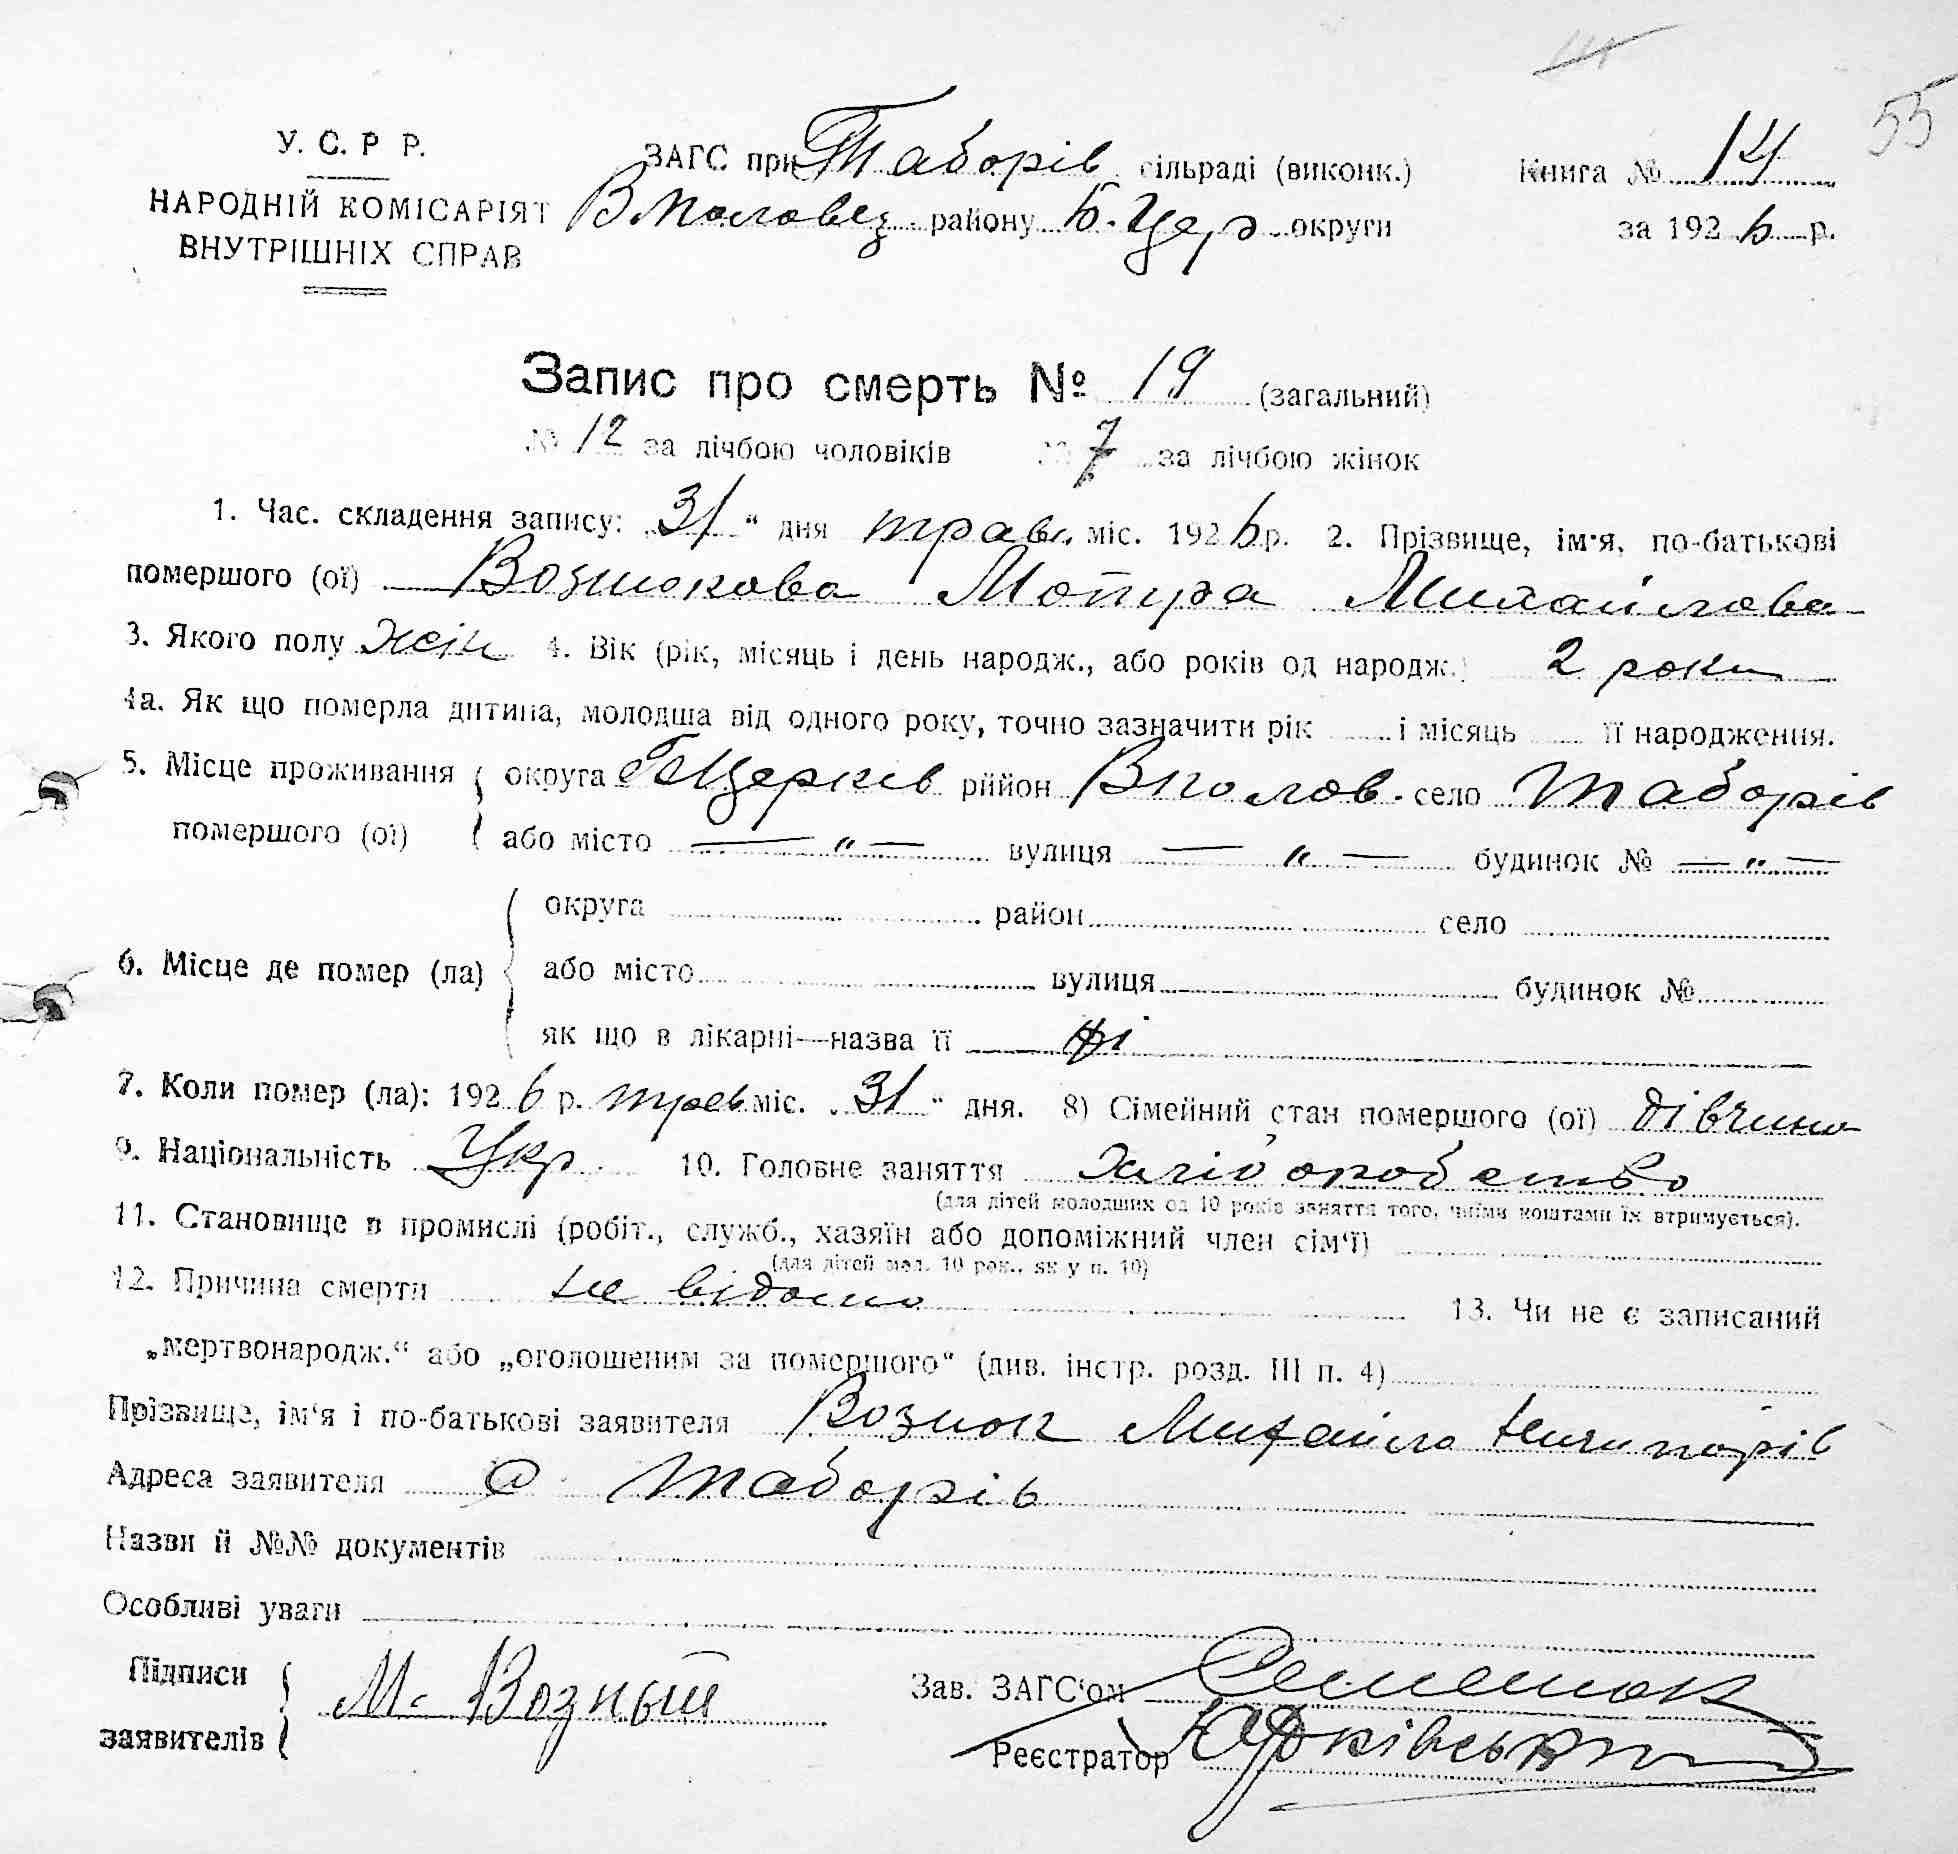 55
У. С. Р Р.
НАРОДНІЙ КОМІСАРІЯТ
ВНУТРІШНІХ СПРАВ
ЗАГС при Таборів сільраді (виконк.)
Вполовец. району Б. Церк. округи
Книга № 14
за 1926 р.
Запис про смерть № 19 (загальний)
№ 12 за лічбою чоловіків № 7 за лічбою жінок
1. Час. складення запису: „31“ дня трав. міс. 1926 р. 2. Прізвище, ім'я, по-батькові
помершого (ої) Вознюкова Мотря Михайлова
3. Якого полу жін 4. Вік (рік, місяць і день народж., або років од народж.) 2 роки
4а. Як що померла дитина, молодша від одного року, точно зазначити рік і місяць її народження.
5. Місце проживання помершого (ої) округа БЦерків рийон Вполов. село Таборів
або місто — „ — вулиця — „ — будинок № — „ —
6. Місце де помер (ла) округа район село
або місто вулиця будинок №
як що в лікарні—назва її ні
7. Коли помер (ла): 1926 р. трав міс. „31“ дня. 8) Сімейний стан помершого (ої) дівчина
9. Національність Укр. 10. Головне заняття хліборобство
(для дітей молодших од 10 років заняття того, чиїми коштами їх втримується).
11. Становище в промислі (робіт., служб., хазяїн або допоміжний член сім'ї)
(для дітей мол. 10 рок., як у п. 10)
12. Причина смерти не відомо 13. Чи не є записаний
„мертвонародж.“ або „оголошеним за помершого“ (див. інстр. розд. III п. 4)
Прізвище, ім'я і по-батькові заявителя Вознюк Михайло Ничипорів
Адреса заявителя с Таборів
Назви й №№ документів
Особливі уваги
Підписи заявителів М. Возный
Зав. ЗАГС'ом Семенюк
Реєстратор